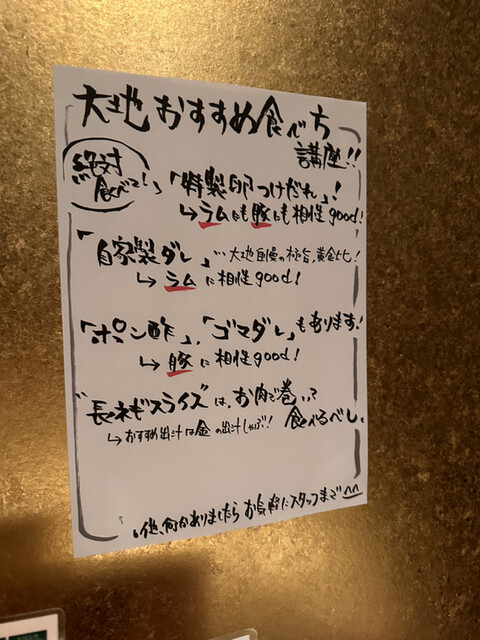 大地おすすめ食べ方
講座!!
絶対
食べて!
「特製卵つけだれ」!
↳ラムにも豚にも相性good!
「自家製ダレ」…大地自慢の極旨,黄金比!
↳ラムに相性good!
「ポン酢」,「ゴマダレ」もあります!
↳豚に相性good!
"長ネギスライス"は、お肉で巻いて
食べるべし。
↳おすすめ出汁は金の出汁しゃぶ!
他、何かありましたらお気軽にスタッフまで^^